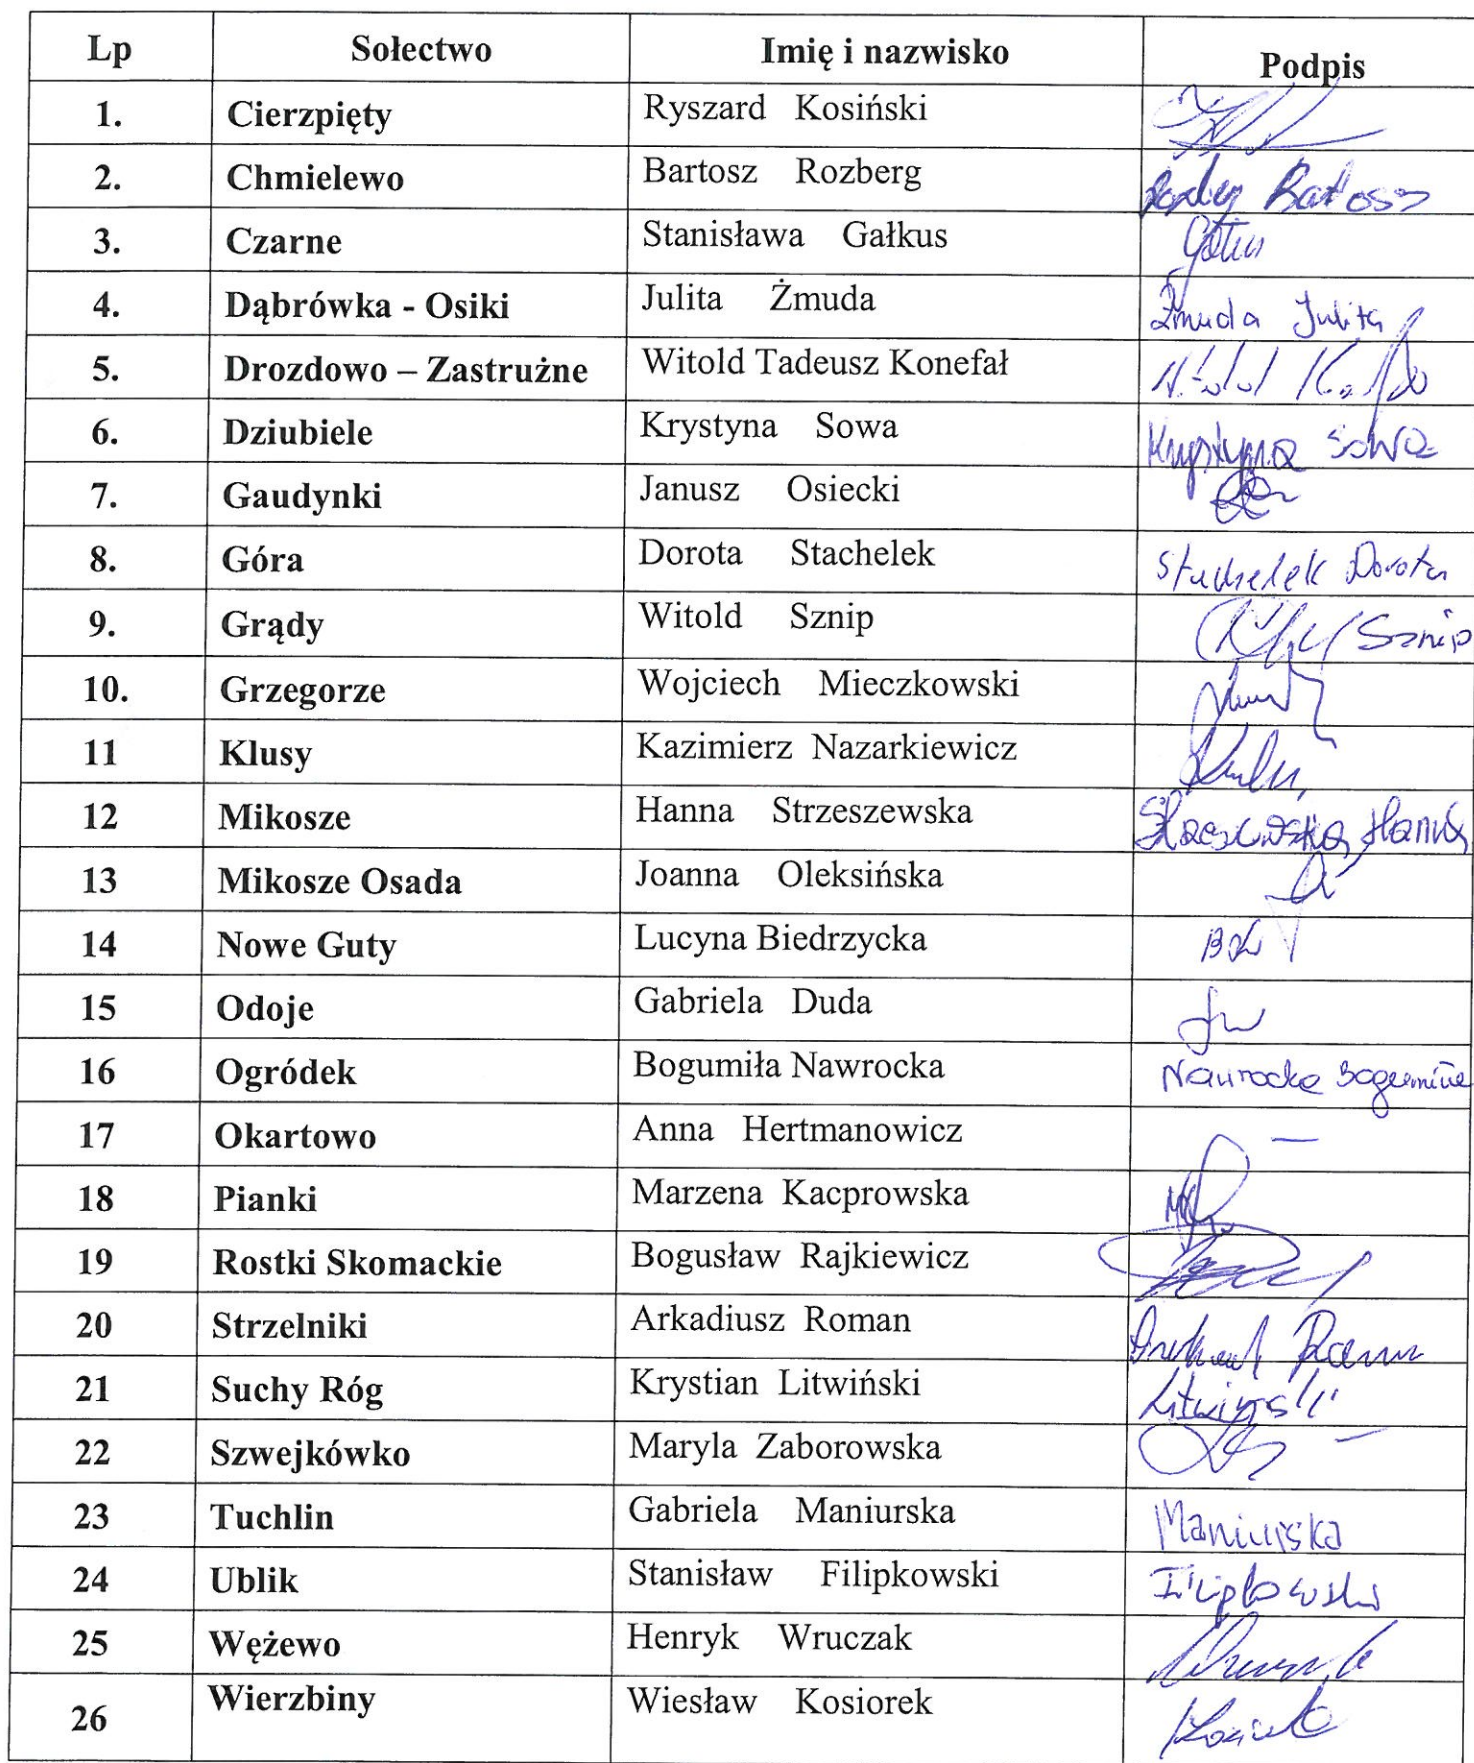 Lp Sołectwo Imię i nazwisko Podpis
1. Cierzpięty Ryszard Kosiński
2. Chmielewo Bartosz Rozberg Bartosz
3. Czarne Stanisława Gałkus
4. Dąbrówka - Osiki Julita Żmuda Żmuda Julita
5. Drozdowo – Zastrużne Witold Tadeusz Konefał
6. Dziubiele Krystyna Sowa Krystyna Sowa
7. Gaudynki Janusz Osiecki
8. Góra Dorota Stachelek Stachelek Dorota
9. Grądy Witold Sznip Sznip
10. Grzegorze Wojciech Mieczkowski
11 Klusy Kazimierz Nazarkiewicz
12 Mikosze Hanna Strzeszewska
13 Mikosze Osada Joanna Oleksińska
14 Nowe Guty Lucyna Biedrzycka
15 Odoje Gabriela Duda
16 Ogródek Bogumiła Nawrocka Nawrocka Bogumiła
17 Okartowo Anna Hertmanowicz —
18 Pianki Marzena Kacprowska
19 Rostki Skomackie Bogusław Rajkiewicz
20 Strzelniki Arkadiusz Roman
21 Suchy Róg Krystian Litwiński Litwiński
22 Szwejkówko Maryla Zaborowska
23 Tuchlin Gabriela Maniurska Maniurska
24 Ublik Stanisław Filipkowski Filipkowski
25 Wężewo Henryk Wruczak
26 Wierzbiny Wiesław Kosiorek